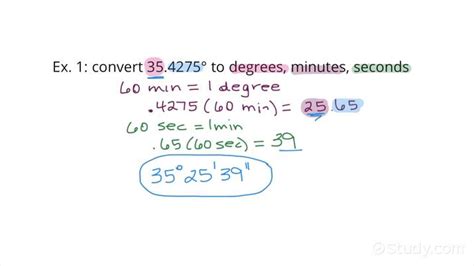 Ex. 1: convert 35.4275° to degrees, minutes, seconds
60 min = 1 degree
.4275 (60 min) = 25.65
60 sec = 1 min
.65 (60 sec) = 39
35° 25' 39"
Study.com